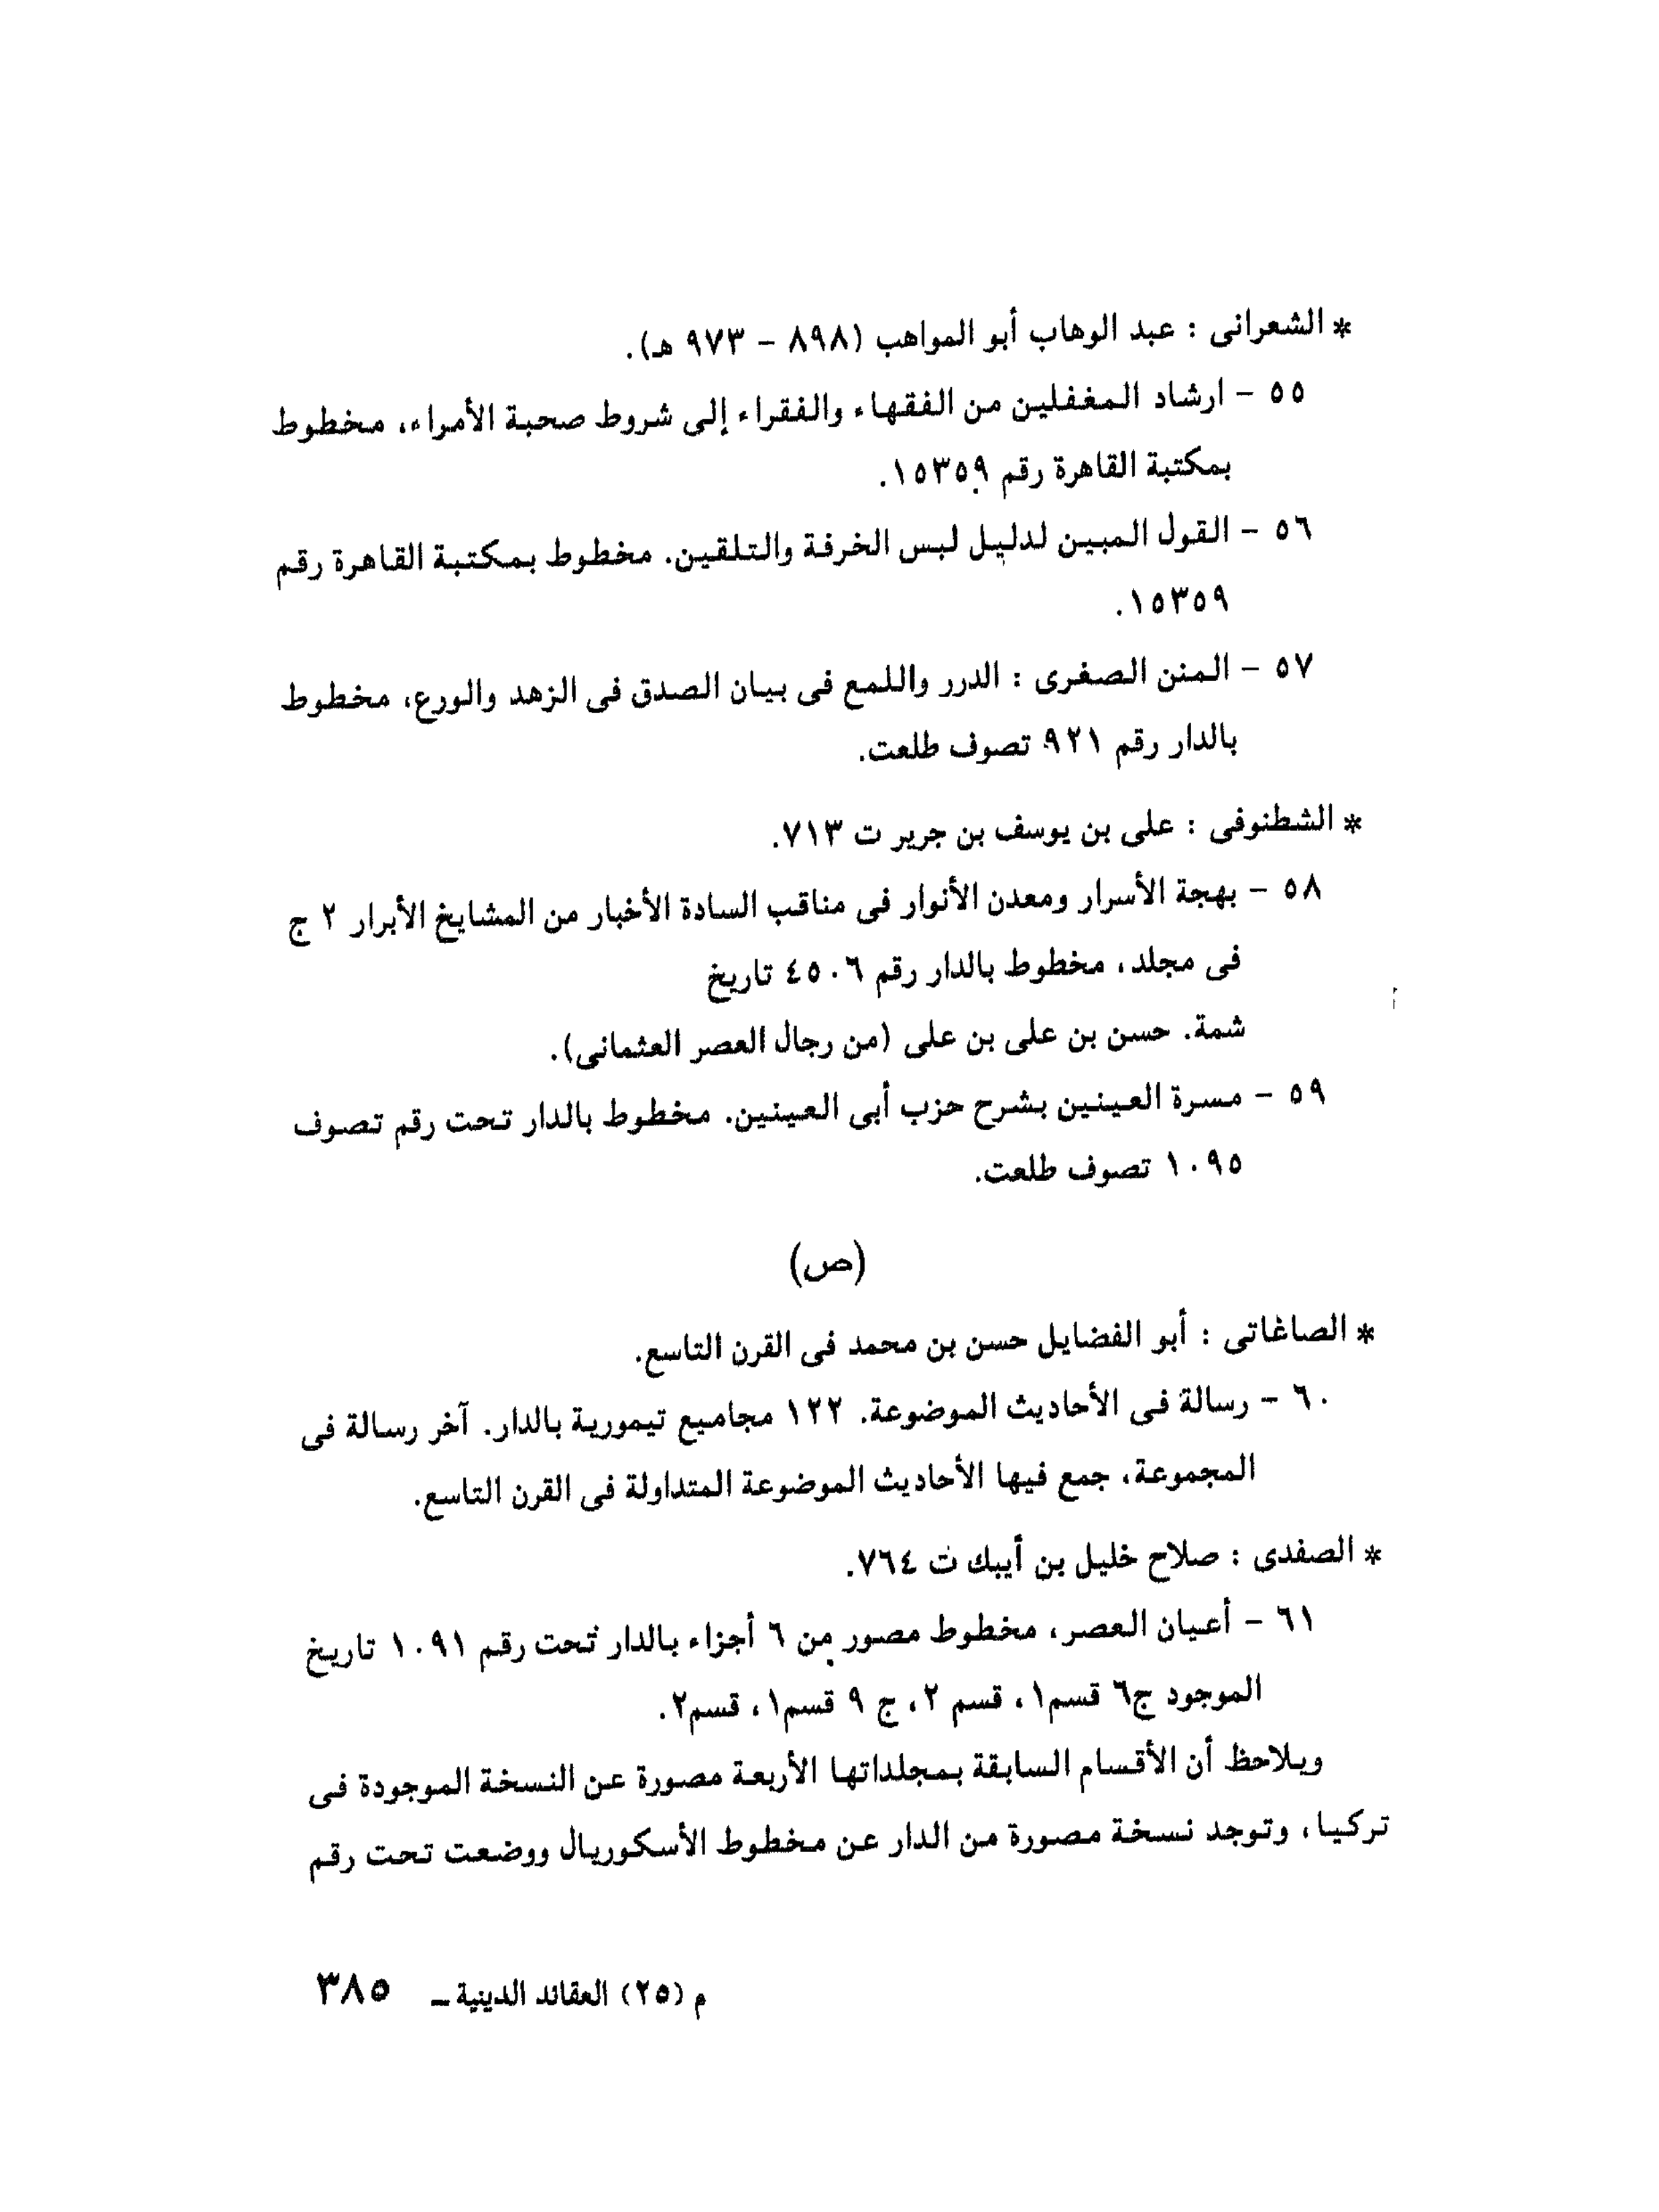 * الشعرانى : عبد الوهاب أبو المواهب (٨٩٨ – ٩٧٣ هـ).
٥٥ – ارشاد المغفلين من الفقهاء والفقراء إلى شروط صحبة الأمراء، مخطوط
بمكتبة القاهرة رقم ١٥٣٥٩.
٥٦ – القول المبين لدليل لبس الخرفة والتلقين. مخطوط بمكتبة القاهرة رقم
١٥٣٥٩.
٥٧ – المنن الصغرى : الدرر واللمع فى بيان الصدق فى الزهد والورع، مخطوط
بالدار رقم ٩٢١ تصوف طلعت.
* الشطنوفى : على بن يوسف بن جرير ت ٧١٣.
٥٨ – بهجة الأسرار ومعدن الأنوار فى مناقب السادة الأخبار من المشايخ الأبرار ٢ ج
فى مجلد، مخطوط بالدار رقم ٤٥٠٦ تاريخ
شمة. حسن بن على بن على (من رجال العصر العثمانى).
٥٩ – مسرة العينين بشرح حزب أبى العينين. مخطوط بالدار تحت رقم تصوف
١٠٩٥ تصوف طلعت.
(ص)
* الصاغاتى : أبو الفضايل حسن بن محمد فى القرن التاسع.
٦٠ – رسالة فى الأحاديث الموضوعة. ١٢٢ مجاميع تيمورية بالدار. آخر رسالة فى
المجموعة، جمع فيها الأحاديث الموضوعة المتداولة فى القرن التاسع.
* الصفدى : صلاح خليل بن أيبك ت ٧٦٤.
٦١ – أعيان العصر، مخطوط مصور من ٦ أجزاء بالدار تحت رقم ١٠٩١ تاريخ
الموجود ج٦ قسم١، قسم ٢، ج ٩ قسم١، قسم٢.
ويلاحظ أن الأقسام السابقة بمجلداتها الأربعة مصورة عن النسخة الموجودة فى
تركيا، وتوجد نسخة مصورة من الدار عن مخطوط الأسكوريال ووضعت تحت رقم
م (٢٥) العقائد الدينية ــ ٣٨٥